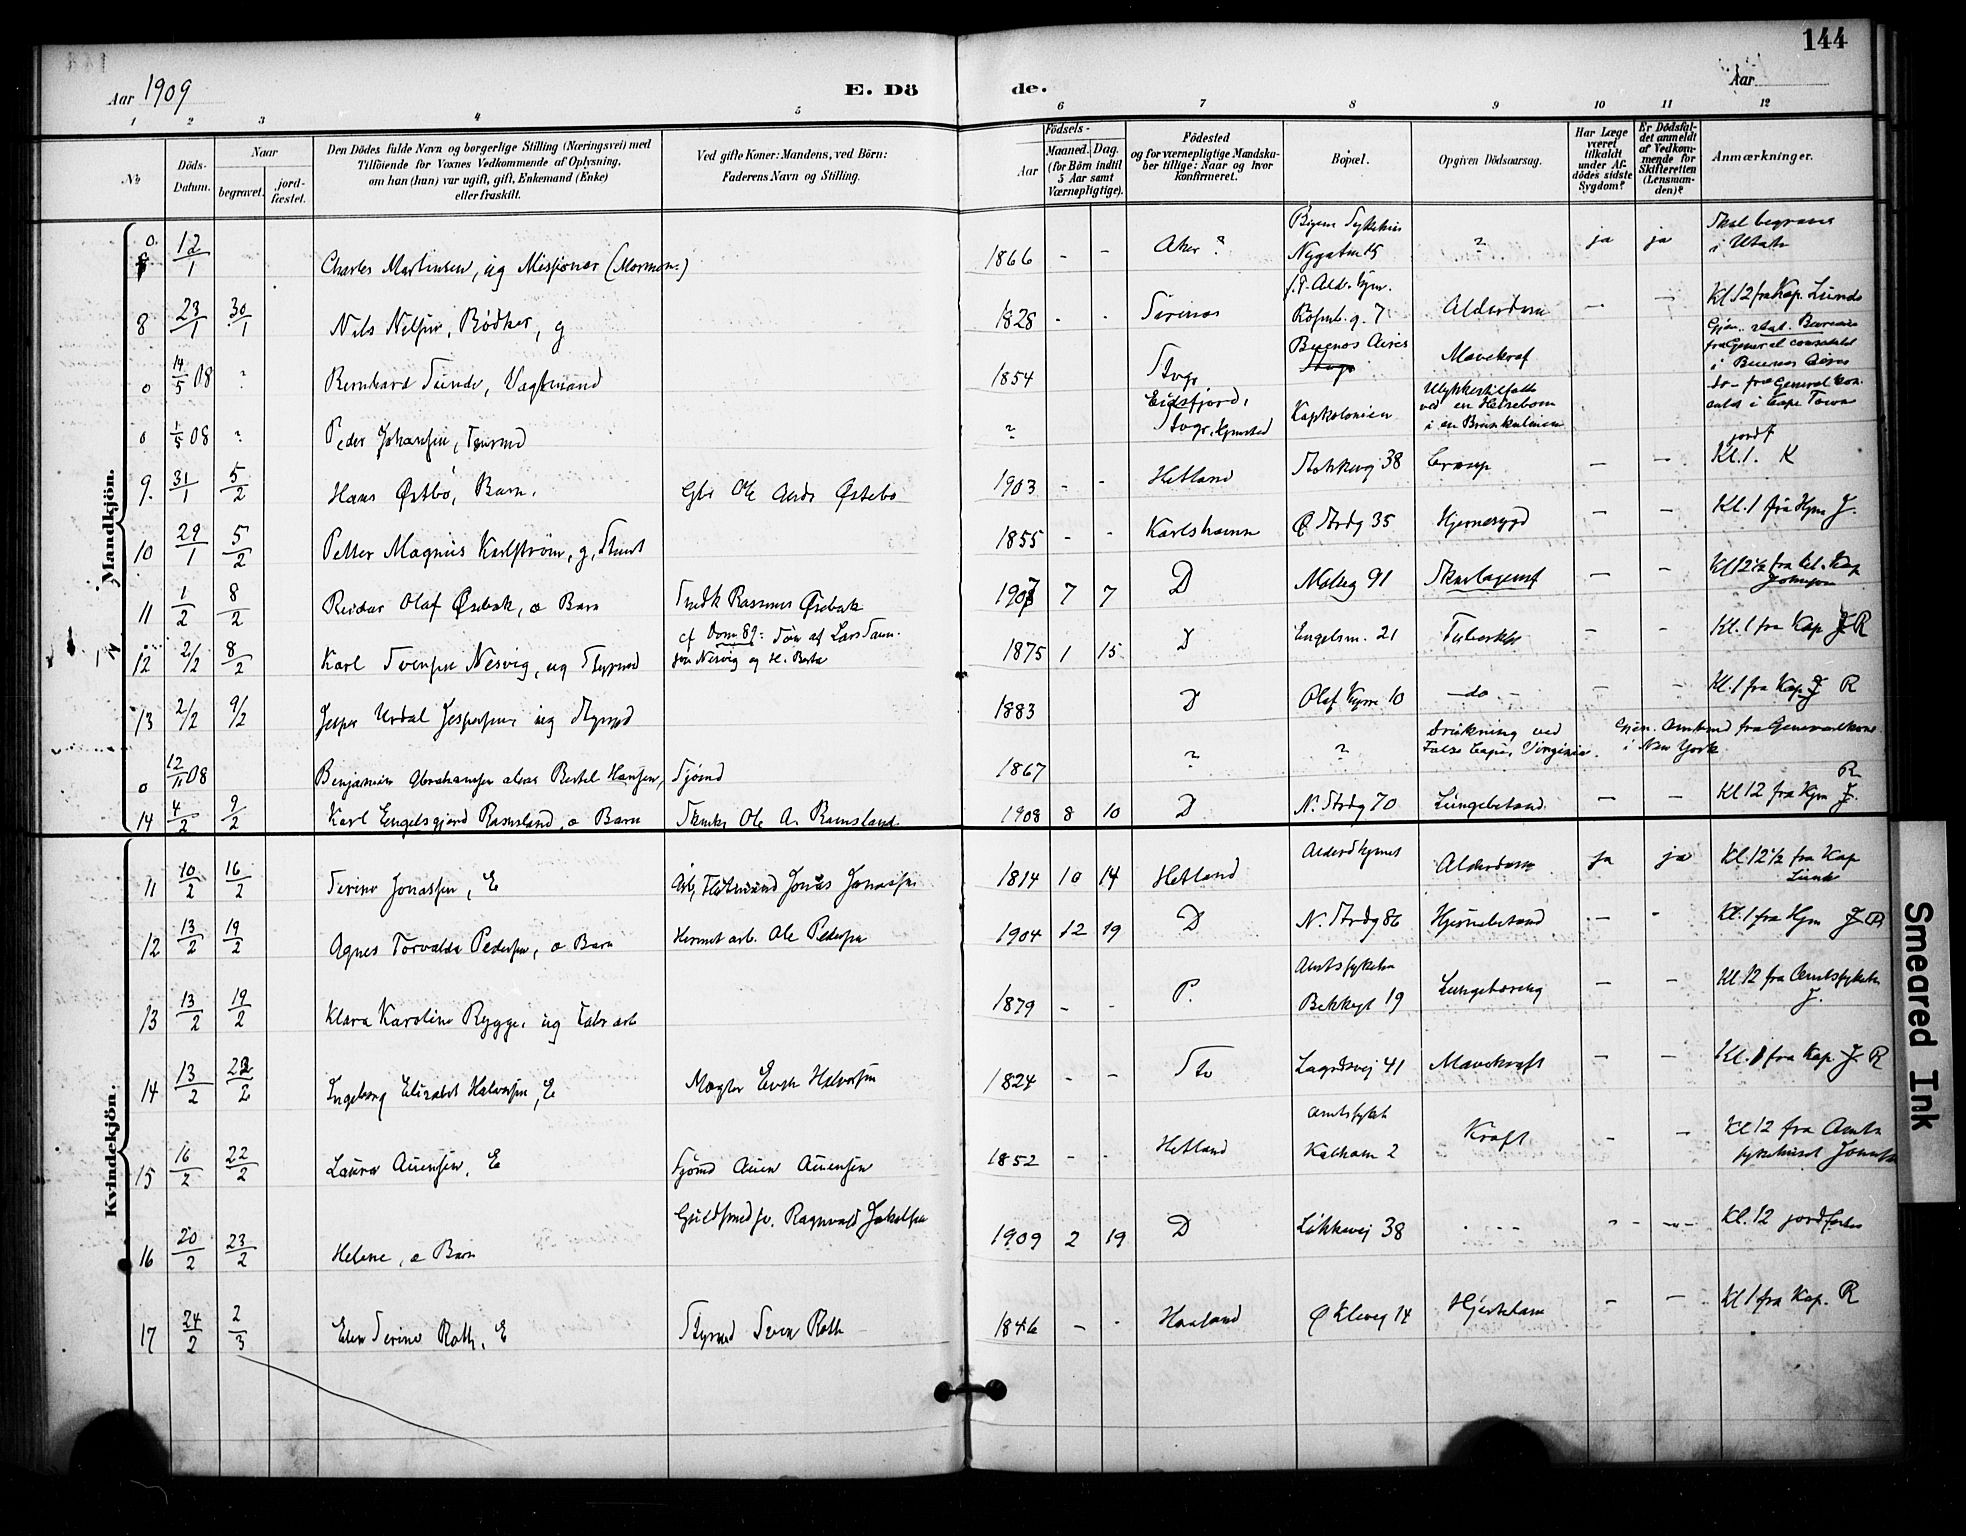 144
Aar 1909
E. Dö de.
Aar
1 2 3 4 5 6 7 8 9 10 11 12
№
Döds-Datum.
Naar
begravet.
jord-fæstet.
Den Dödes fulde Navn og borgerlige Stilling (Næringsvei) med
Tilföiende for Voxnes Vedkommende af Oplysning,
om han (hun) var ugift, gift, Enkemand (Enke)
eller fraskilt.
Ved gifte Koner: Mandens, ved Börn:
Faderens Navn og Stilling.
Födsels-
Aar
Maaned. Dag.
(for Börn indtil
5 Aar samt
Værnepligtige).
Födested
og for værnepligtige Mandska-
ber tillige: Naar og hvor
konfirmeret.
Bopæl.
Opgiven Dödsaarsag.
Har Læge
været
tilkaldt
under Af-
dödes sidste
Sygdom?
Er Dödsfal-
det anmeldt
af Vedkom-
mende for
Skifteretten
(Lensman-
den)?
Anmærkninger.
Mandkjön.
0 12/1 Charles Martinsen, ug Missionær (Mormon.) 1866 - - Aker ? Byens Sykehus Nygaten 15 ? ja ja Skal begraves i Utah
8 23/1 30/1 Nils Nilsen, Bødker, g 1828 - - Sirenes Rosenb. g. 7 Alderdom - - Kl 12 fra Kap. Lunde
0 14/5 08 ? Bernhard Tunde, Vagtmand 1854 Stvgr Buenos Aires Mavekraf Gjen. stat. Bureau fra General consulatet i Buenos Aires
0 1/5 08 ? Peder Johansen, Tømrmd ? Eidsfjord, Stvgr. hjemsted Kapkolonien Ulykkestilfælde ved en Heisebom i en Brønkulmine do - fra Generalkonsulat i Cape Town
9. 31/1 5/2 Hans Østbö, Barn. Gbr Ole Ands Østebø 1903 - - Hetland Stokkevj 38 Croup - - jordf Kl. 1. K
10 29/1 5/2 Petter Magnus Karlström, g, Stuert 1855 - - Karlshamn Ø. Strdg 35 Hjernesygd - - Kl. 1 fra Hjm J.
11 1/2 8/2 Reidar Olaf Øsebak, æ Barn Snedk Rasmus Øsebak 1907 7 7 D Nelseg 91 Skarlagensf - - Kl 12½ fra bl. Kap Johnsen
12 2/2 8/2 Karl Svensen Nesvig, ug Styrmd cf Dom 89: Søn af Lars Sam. sen Nesvig og H. Berta 1875 1 15 D Engelsm. 21 Tuberkler - - Kl. 1 fra Kap J R
13 2/2 9/2 Jesper Urdal Jespersen, ug Styrmd 1883 D Olaf Kyrre 10 - do - - - Kl. 1 fra Kap J R
0 12/11 08 Benjamin Abrahamsen alias Bertel Hansen, Sjömd 1867 ? ? Drukning ved False Cape, Virginia. Gjen. Amtmd fra Generalkons. i New York
14 4/2 9/2 Karl Engelsgjerd Ramsland, æ Barn Skinke Ole A. Ramsland 1908 8 10 D N. Strdg 70 Lungebetænd. - - Kl 12 fra Hjm J. R
Kvindekjön.
11 10/2 16/2 Serine Jonassen, E Arb, Flötmand Jonas Jonassen 1814 10 14 Hetland Alderdhjemet Alderdom ja ja Kl. 12½ fra Kap Lunde
12 13/2 19/2 Agnes Torvalda Pedersen, æ Barn Hermet. arb. Ole Pedersen 1904 12 19 D N. Strdg 86 Hjernebetænd - - Kl. 1 fra Hjm J R
13 13/2 19/2 Klara Karoline Rygge, ug Fabr arb 1879 - - P. Amtssykehu Bekkegt 19 Lungetæring - - Kl. 12 fra Amtssykeh J.
14 13/2 22/2 Ingeborg Elisabet Halvorsen, E Mægler Even Halvorsen 1824 - - Stv Lagårdsvej 41 Mavekræft - - Kl. 1 fra Kap. J R
15 16/2 22/2 Laura Auensen, E Sjömd Auen Auensen 1852 - - Hetland amtssykeh Kalham 2 Kræft - - Kl 12 fra Amts sykehuset Jonassen
16 20/2 23/2 Helene, æ Barn Guldsmedsv. Ragnvald Jakobsen 1909 2 19 D Løkkevej 38 - - - Kl. 12 jordfæstes
17 24/2 2/3 Elen Serine Roth, E Styrmd Sven Roth 1846 - - Haaland Ø Klevej 14 Hjertelam - - Kl 1 fra Kap. R
Smeared Ink